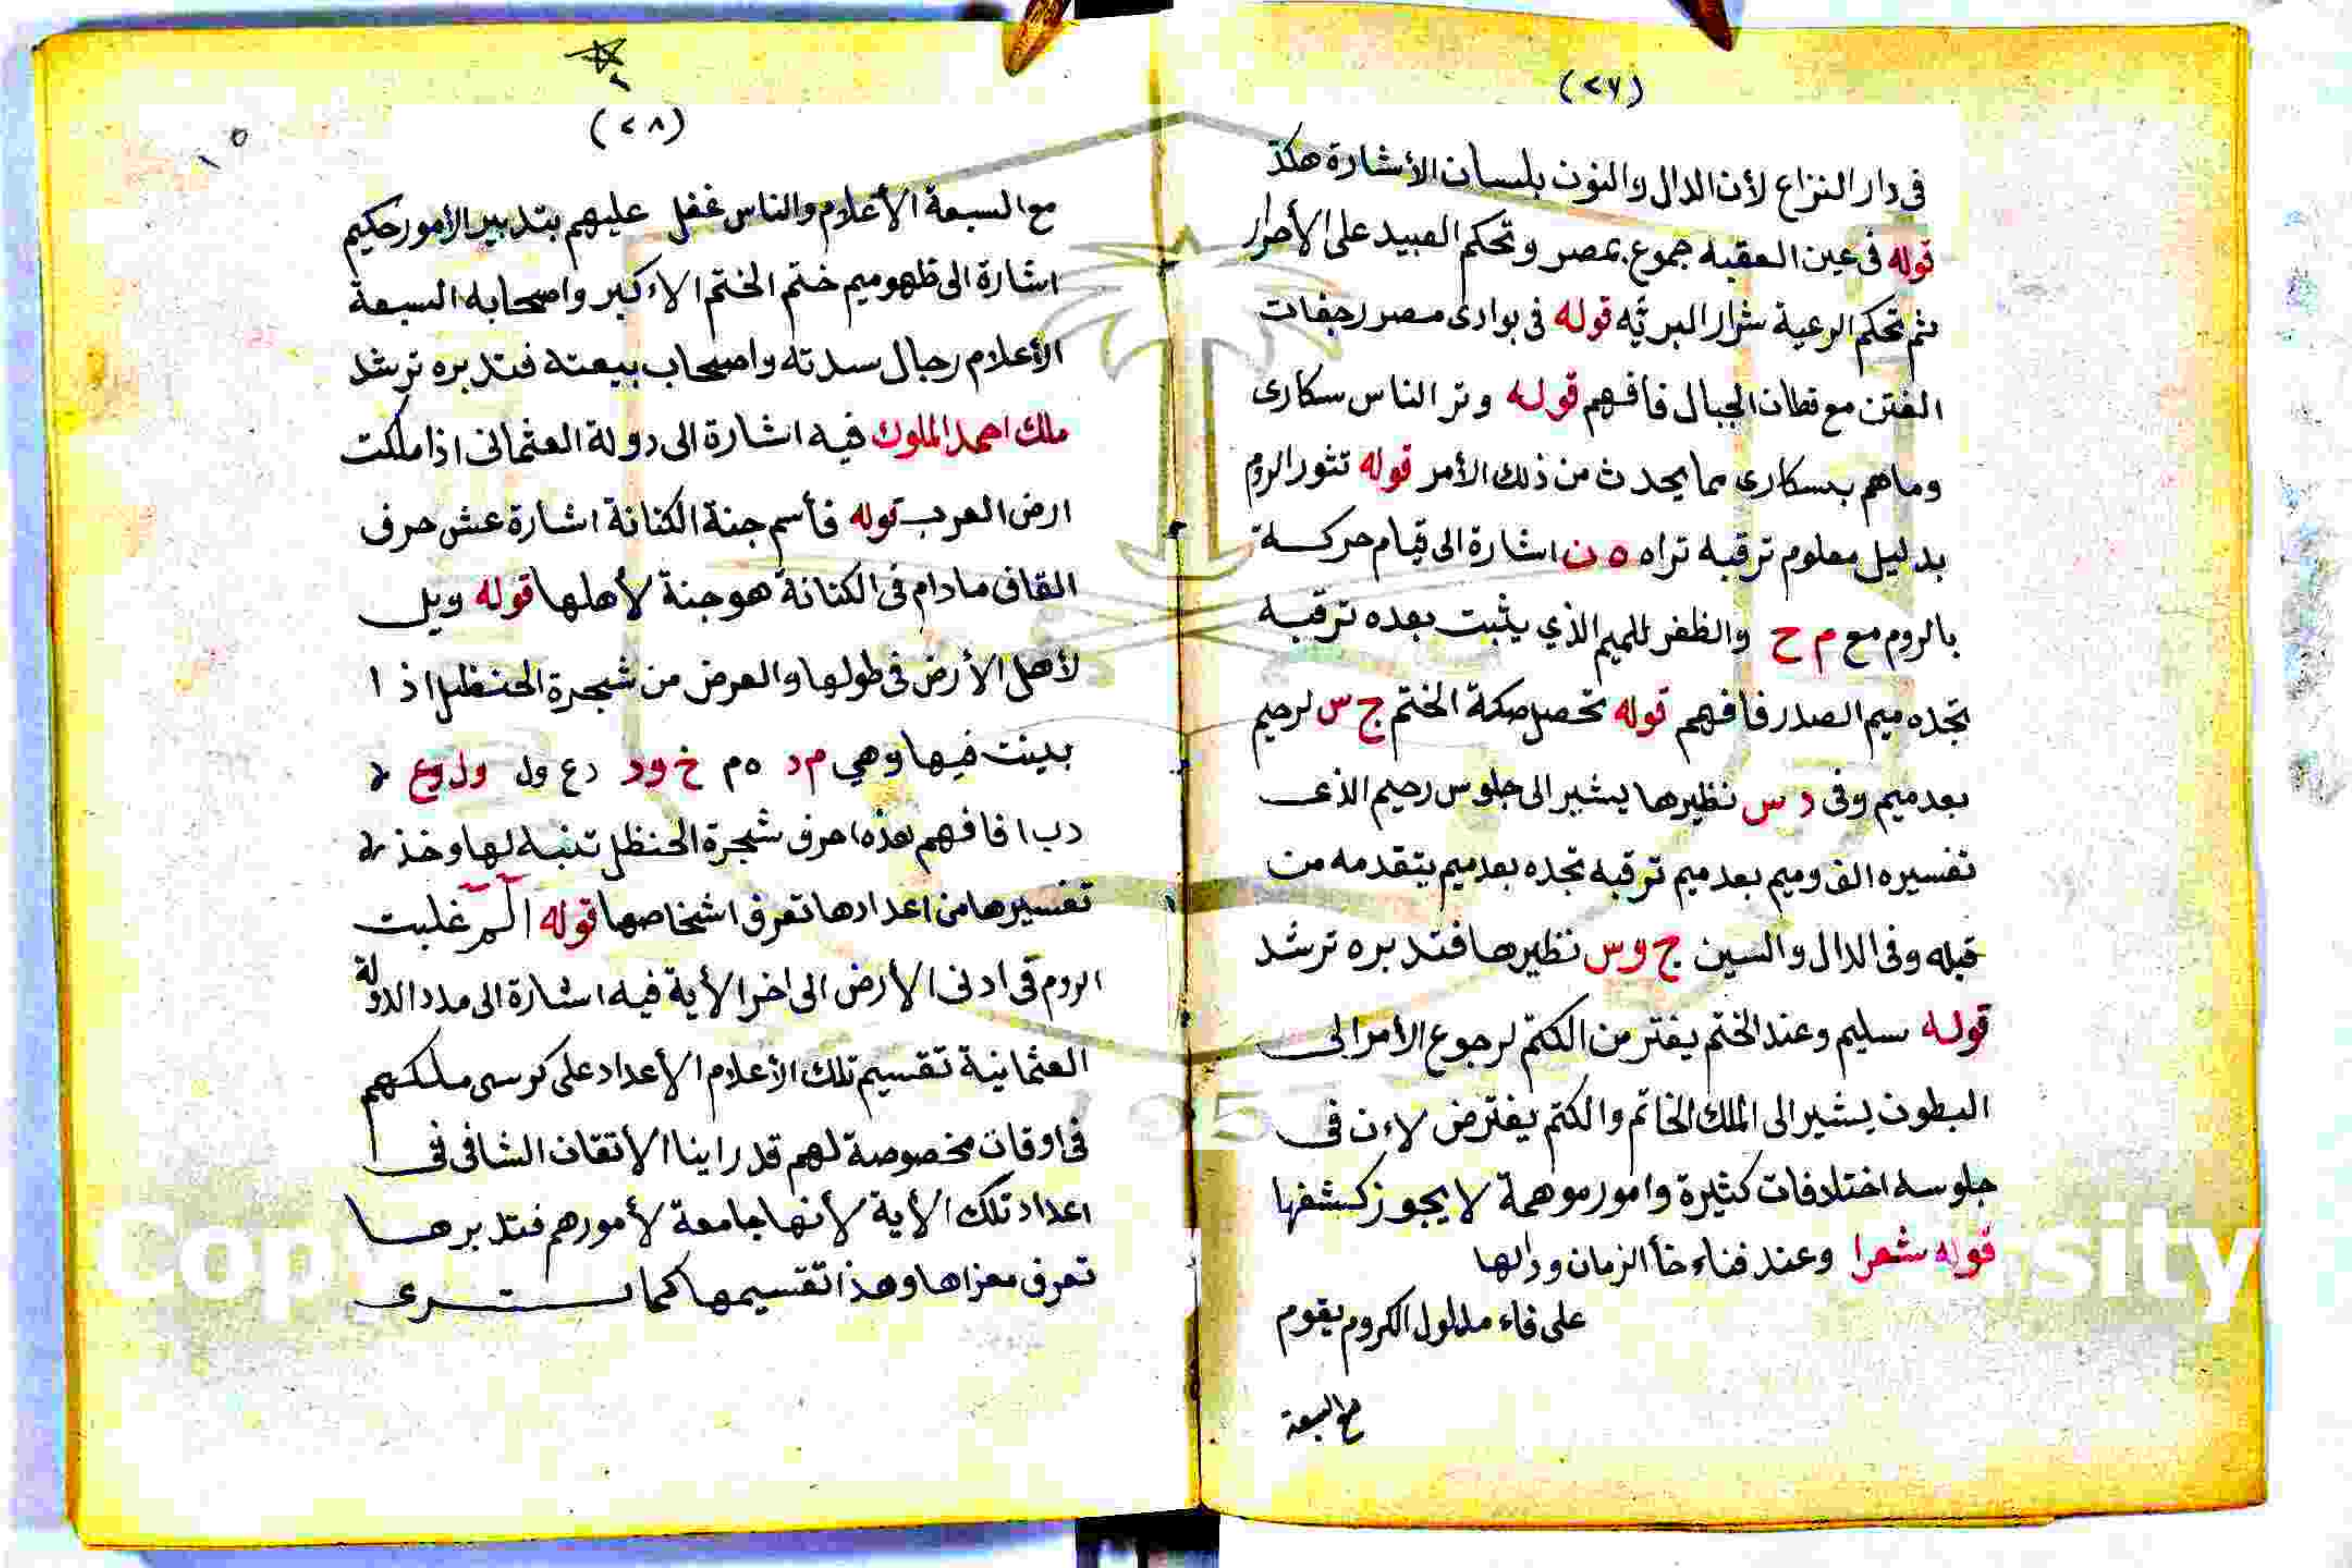 (٢٧)
فى دار النزاع لأن الدال والنون بلسان الأشارة هكذ
قوله فى عين العقبه جموع بمصر وتحكم العبيد على الأحرار
ثم تحكم الرعية شرار البريّه قوله فى بوادى مصر رجفات
الفتن مع قطان الجبال فافهم قوله وتر الناس سكارى
وماهم بسكارى مما يحدث من ذلك الأمر قوله تثور الروم
بدليل معلوم ترقبه تراه ه ن اشارة الى قيام حركة
بالروم مع م ح والظفر للميم الذي يثبت بعده ترقبه
تجده ميم الصدر فافهم قوله تحصل صكة الختم ج س لرحيم
بعد ميم وفى د س نظيرها يشير الى جلوس رحيم الذى
تفسيره الف وميم بعد ميم ترقبه تجده بعد ميم يتقدمه من
قبله وفى الدال والسين ج وس نظيرها فتدبره ترشد
قوله سليم وعند الختم يفتر من الكتم لرجوع الأمر الى
البطون يشير الى الملك الخاتم والكتم يفترض لاءن فى
جلوسه اختلافات كثيرة وامور موهمة لا يجوز كشفها
قوله شعرا وعند فناء خأ الزمان ودالها
على فاء مدلول الكروم يقوم
مع السبعة
(٢٨)
مع السبعة الأعلام والناس غفل عليهم بتدبير الأمور حكيم
اشارة الى ظهور ميم ختم الختم الاكبر واصحابه السبعة
الأعلام رجال سدته واصحاب بيعته فتدبره ترشد
ملك احمد الملوك فيه اشارة الى دولة العثمانى اذا ملكت
ارض العرب قوله فأسم جنة الكنانة اشارة عش حرف
القاف مادام فى الكنانة هو جنة لأهلها قوله ويل
لأهل الأرض فى طولها والعرض من شجرة الحنظل اذا
بدينت فيها وهي م د ه م خ و د د ع ول ول وع
د ب ا فافهم هذه احرف شجرة الحنظل تنبه لها وخذ
تفسيرها من اعدادها تعرف اشخاصها قوله الم غلبت
الروم فى ادنى الارض الى اخر الأية فيه اشارة الى مدد الدولة
العثمانية تقسيم تلك الأعلام الأعداد على كرسى ملكهم
فى اوقات مخصوصة لهم قد راينا الأتقان الشافى فى
اعداد تلك الأية لأنها جامعة لأمورهم فتدبرها
تعرف معزاها وهذا تقسيمها كما ترى